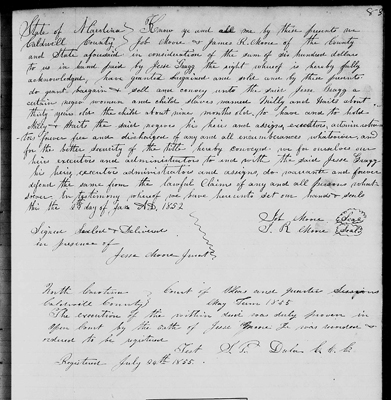 83
State of N Carolina Know ye and all me by these presents we
Caldwell County Job Moore & James R. Moore of the County
and State aforesaid in consideration of the sum of six hundred dollars
to us in hand paid by Jesse Gragg the right whereof is hereby fully
acknowledged, have granted bargained and sold and by these presents
do grant bargain & sell and convey unto the said Jesse Gragg a
certain negro women and child slaves named Milly and about
thirty years old the child about nine months old, to have and to hold
Milly & the said negroes his heirs and assigns, executors, administra
tors forever free and discharged of any and all encumbrances whatsoever and
for the better security of the title hereby conveyed we for ourselves our
heirs executors and administrators to and with the said Jesse Gragg
his heirs executors administrators and assigns, do warrante and forever
defend the same from the lawful Claims of any and all persons what
soever In testimony whereof we have hereunto set our hands & seals
this the day of Jan AD, 1852
Job Moore Seal
Signed Sealed & Delivered J. R. Moore Seal
in presence of
Jesse Moore Jurat
North Carolina Court of Pleas and quarter Sessions
Caldwell County May Term 1855
The execution of the within deed was duly proven in
open Court by the oath of Jesse Moore and
ordered to be registered
Test
Registered July 24th 1855.